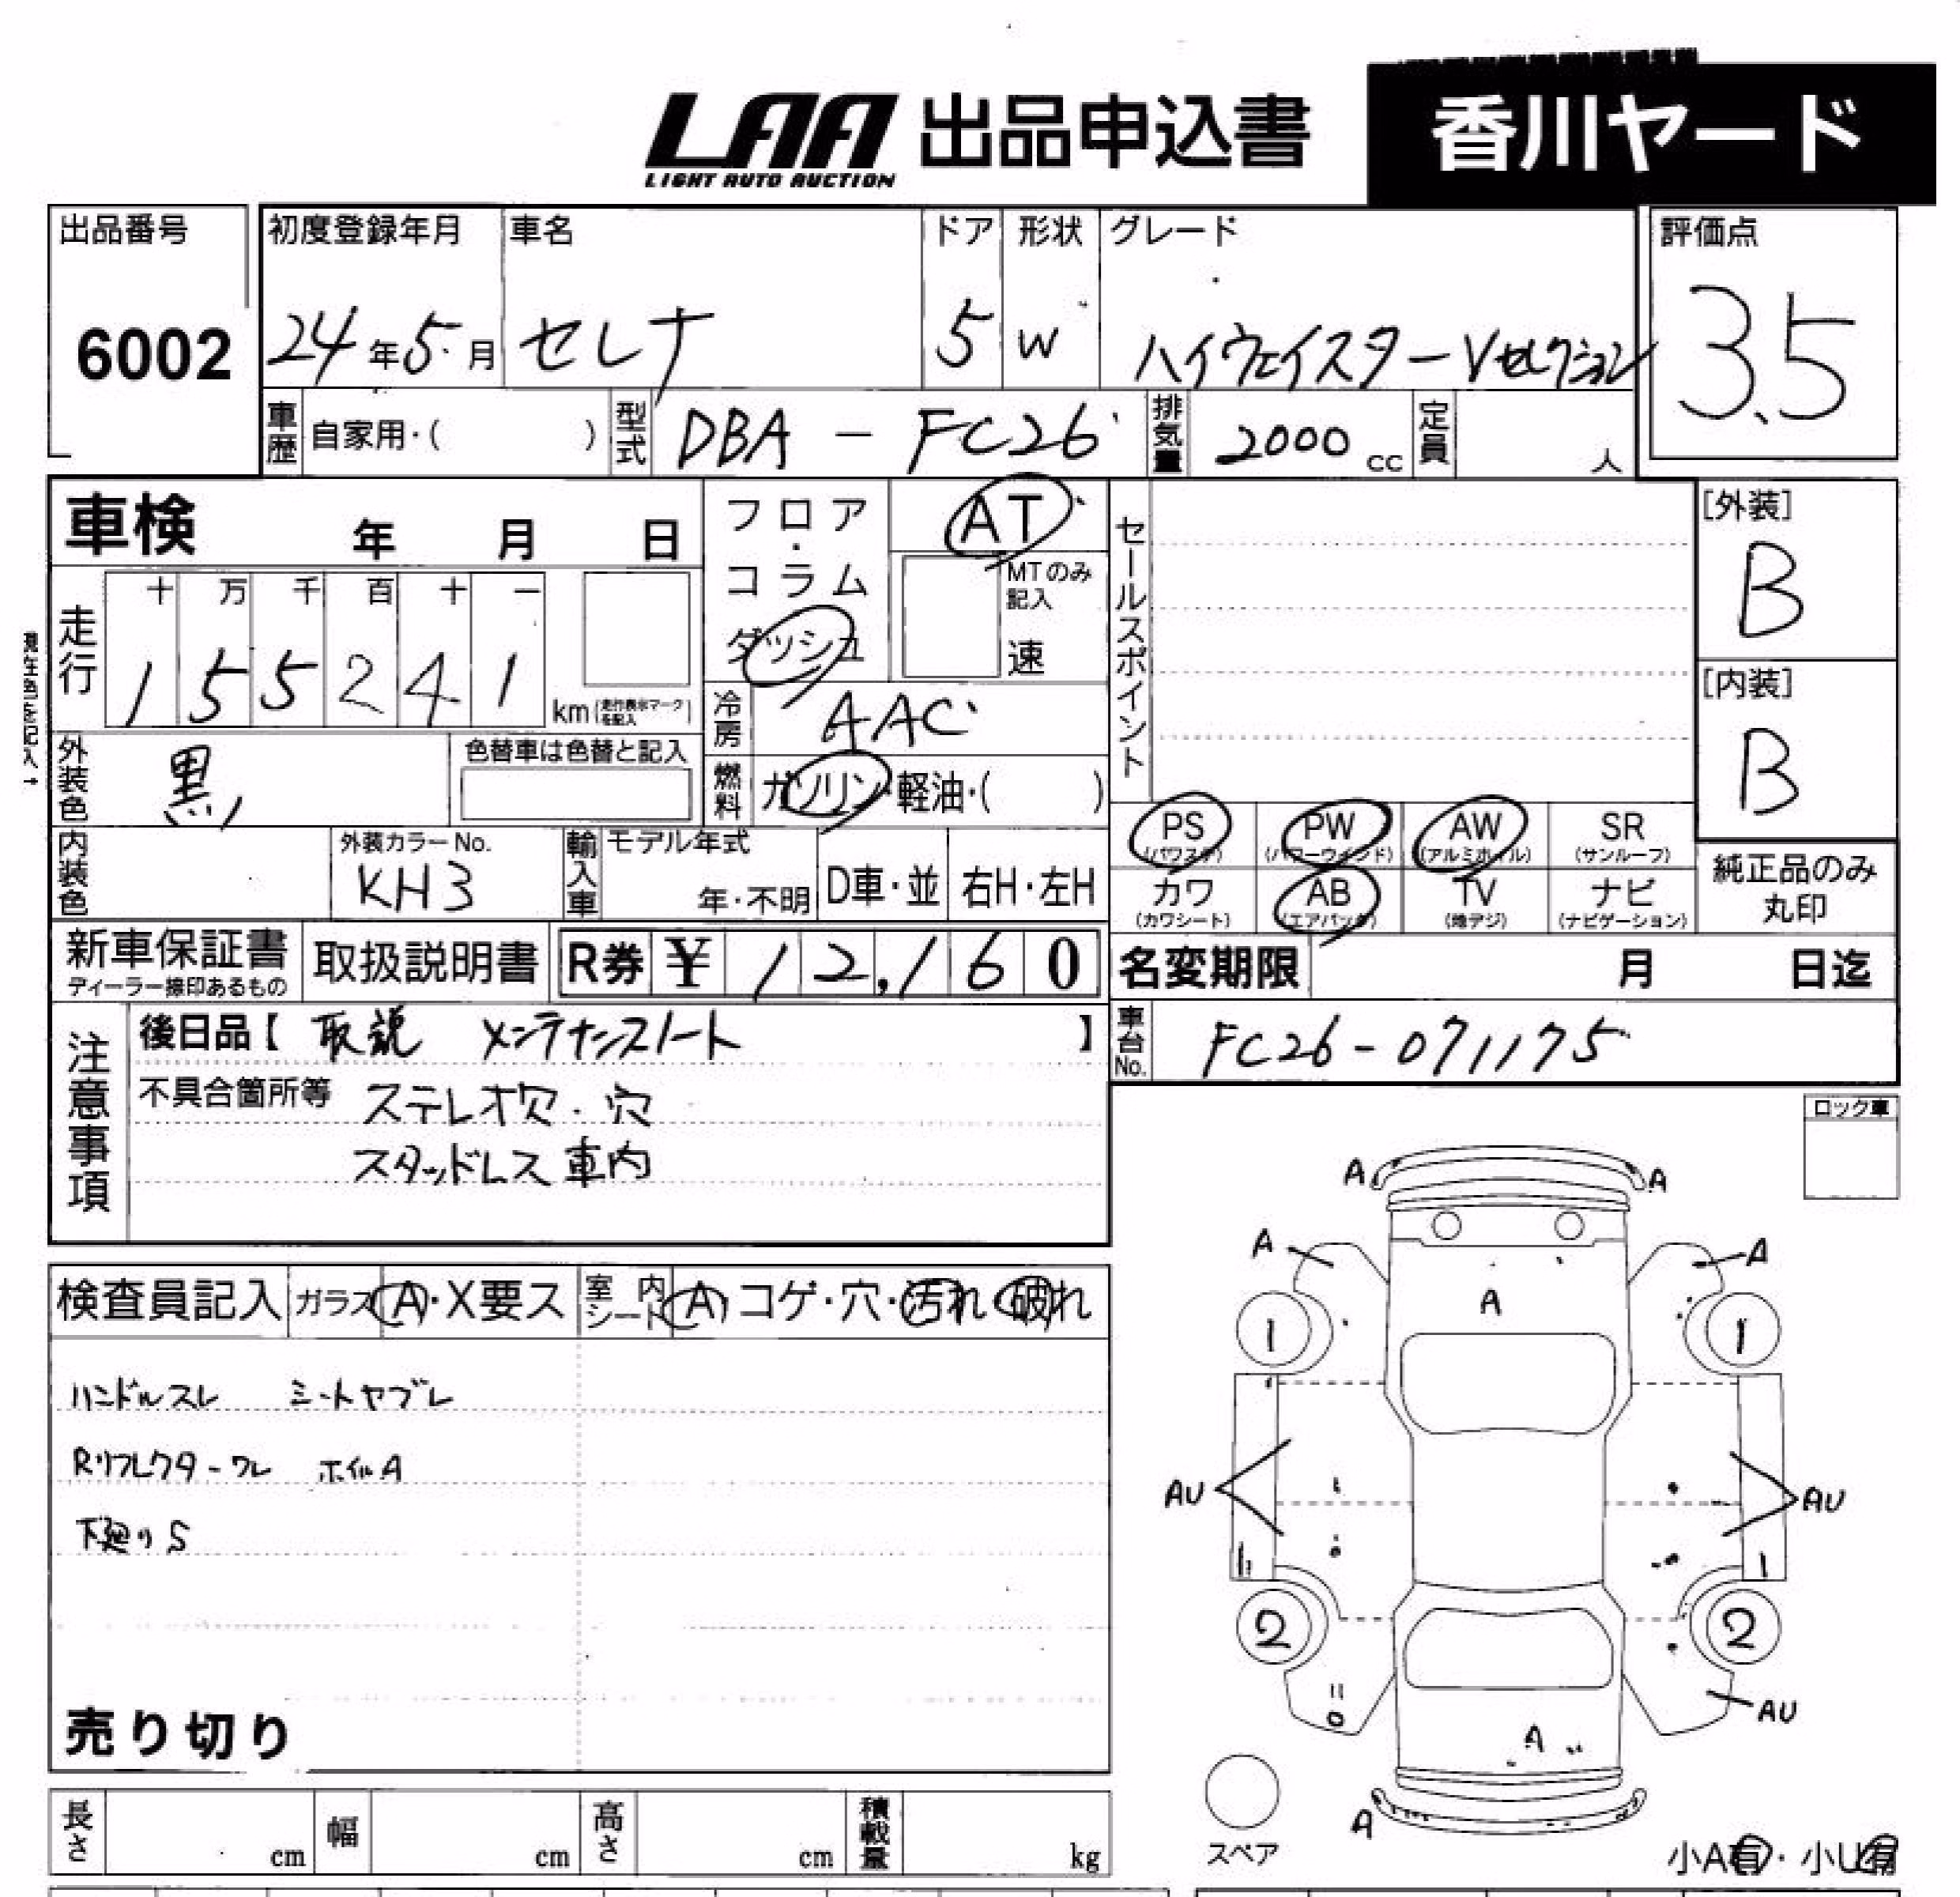 LAA 出品申込書 香川ヤード
LIGHT AUTO AUCTION
出品番号 初度登録年月 車名 ドア 形状 グレード 評価点
6002 24年5月 セレナ 5 W ハイウェイスターVセレクション 3.5
車歴 自家用・( ) 型式 DBA-FC26 排気量 2000cc 定員 人
車検 年 月 日 フロア・コラム ダッシュ AT
MTのみ記入 速
セールスポイント
[外装] B
[内装] B
現在色を記入→
走行 十 万 千 百 十 一
1 5 5 2 4 1 km(走行表示マークを記入)
冷房 AAC
外装色 黒 色替車は色替と記入
燃料 ガソリン・軽油・( )
PS(パワステ) PW(パワーウインド) AW(アルミホイル) SR(サンルーフ)
カワ(カワシート) AB(エアバック) TV(地デジ) ナビ(ナビゲーション)
純正品のみ丸印
内装色 外装カラーNo. KH3 輸入車 モデル年式 年・不明 D車・並 右H・左H
新車保証書 ディーラー捺印あるもの 取扱説明書 R券 ¥12,160 名変期限 月 日迄
注意事項 後日品【 取説 メンテナンスノート 】
車台No. FC26-071175
不具合箇所等 ステレオ欠.穴
スタッドレス車内
ロック車
検査員記入 ガラス A・X要ス 室内シート A・コゲ・穴・汚れ・破れ
ハンドルスレ シートヤブレ
Rリフレクターワレ ホイルA
下廻りS
売り切り
A A
A A
A
1 1
AU AU
2 2
AU
A
A
スペア
小A有・小U有
長さ cm 幅 cm 高さ cm 積載量 kg